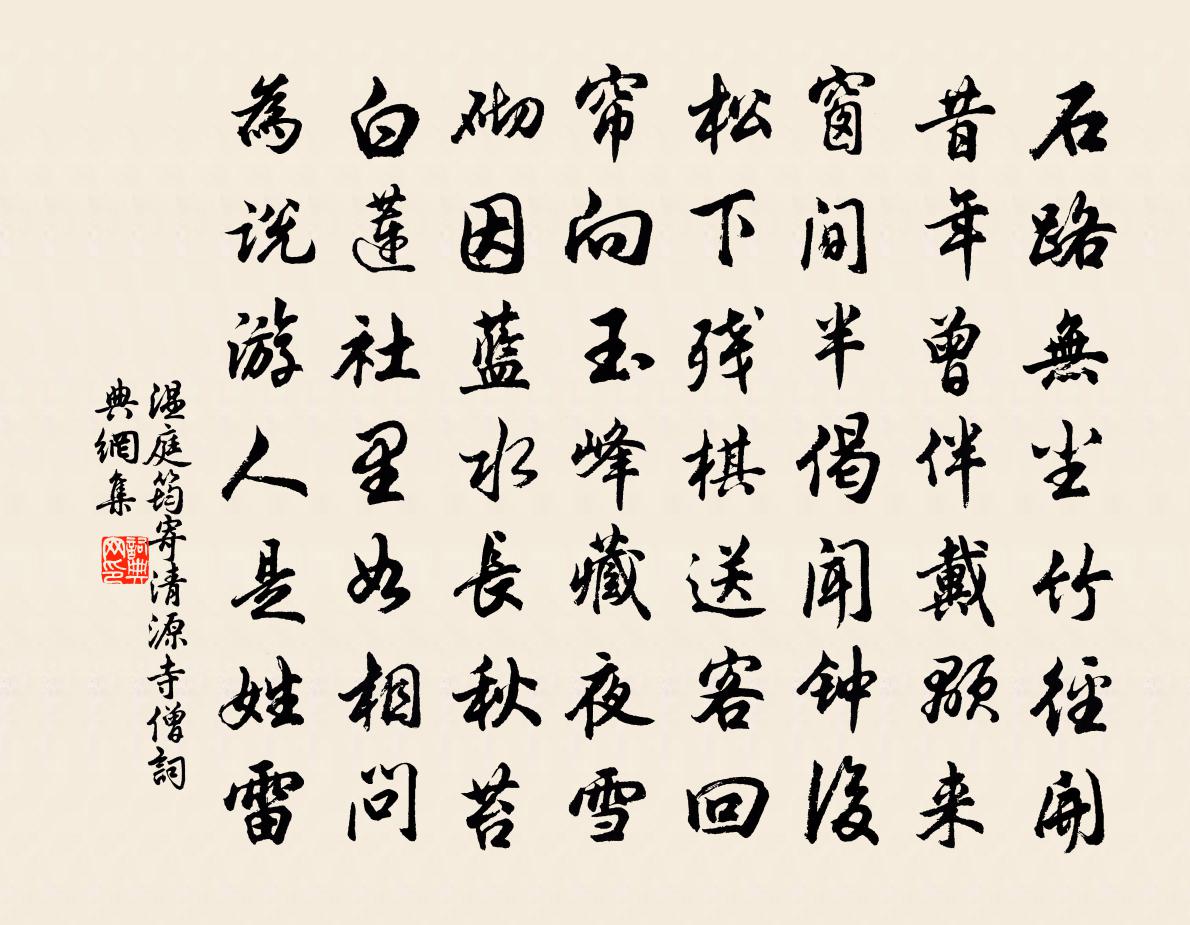 石路無尘竹径開
昔年曾伴戴顒来
窗间半偈闻钟後
松下残棋送客回
帘向玉峰藏夜雪
砌因蓝水長秋苔
白莲社里如相問
為说游人是姓雷
温庭筠寄清源寺僧詞
典網集
詞典网印